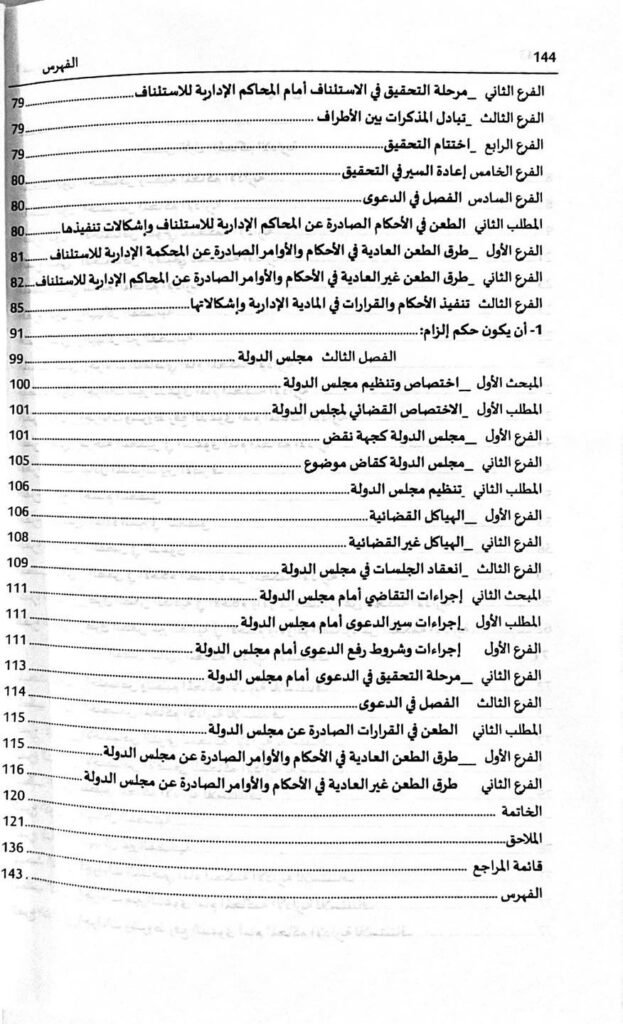 144
الفهرس
الفرع الثاني _مرحلة التحقيق في الاستئناف أمام المحاكم الإدارية للاستئناف 79
الفرع الثالث _تبادل المذكرات بين الأطراف 79
الفرع الرابع _اختتام التحقيق 79
الفرع الخامس إعادة السير في التحقيق 80
الفرع السادس الفصل في الدعوى 80
المطلب الثاني الطعن في الأحكام الصادرة عن المحاكم الإدارية للاستئناف وإشكالات تنفيذها 80
الفرع الأول _طرق الطعن العادية في الأحكام والأوامر الصادرة عن المحكمة الإدارية للاستئناف 81
الفرع الثاني _طرق الطعن غير العادية في الأحكام والأوامر الصادرة عن المحاكم الإدارية للاستئناف 82
الفرع الثالث تنفيذ الأحكام والقرارات في المادية الإدارية وإشكالاتها 85
1- أن يكون حكم إلزام: 91
الفصل الثالث مجلس الدولة 99
المبحث الأول _اختصاص وتنظيم مجلس الدولة 100
المطلب الأول _الاختصاص القضائي لمجلس الدولة 101
الفرع الأول _مجلس الدولة كجهة نقض 101
الفرع الثاني _مجلس الدولة كقاض موضوع 105
المطلب الثاني _تنظيم مجلس الدولة 106
الفرع الأول _الهياكل القضائية 106
الفرع الثاني _الهياكل غير القضائية 108
الفرع الثالث _انعقاد الجلسات في مجلس الدولة 109
المبحث الثاني إجراءات التقاضي أمام مجلس الدولة 111
المطلب الأول _إجراءات سير الدعوى أمام مجلس الدولة 111
الفرع الأول إجراءات وشروط رفع الدعوى أمام مجلس الدولة 111
الفرع الثاني _مرحلة التحقيق في الدعوى أمام مجلس الدولة 113
الفرع الثالث الفصل في الدعوى 114
المطلب الثاني الطعن في القرارات الصادرة عن مجلس الدولة 115
الفرع الأول _طرق الطعن العادية في الأحكام والأوامر الصادرة عن مجلس الدولة 115
الفرع الثاني طرق الطعن غير العادية في الأحكام والأوامر الصادرة عن مجلس الدولة 116
الخاتمة 120
الملاحق 121
قائمة المراجع 136
الفهرس 143